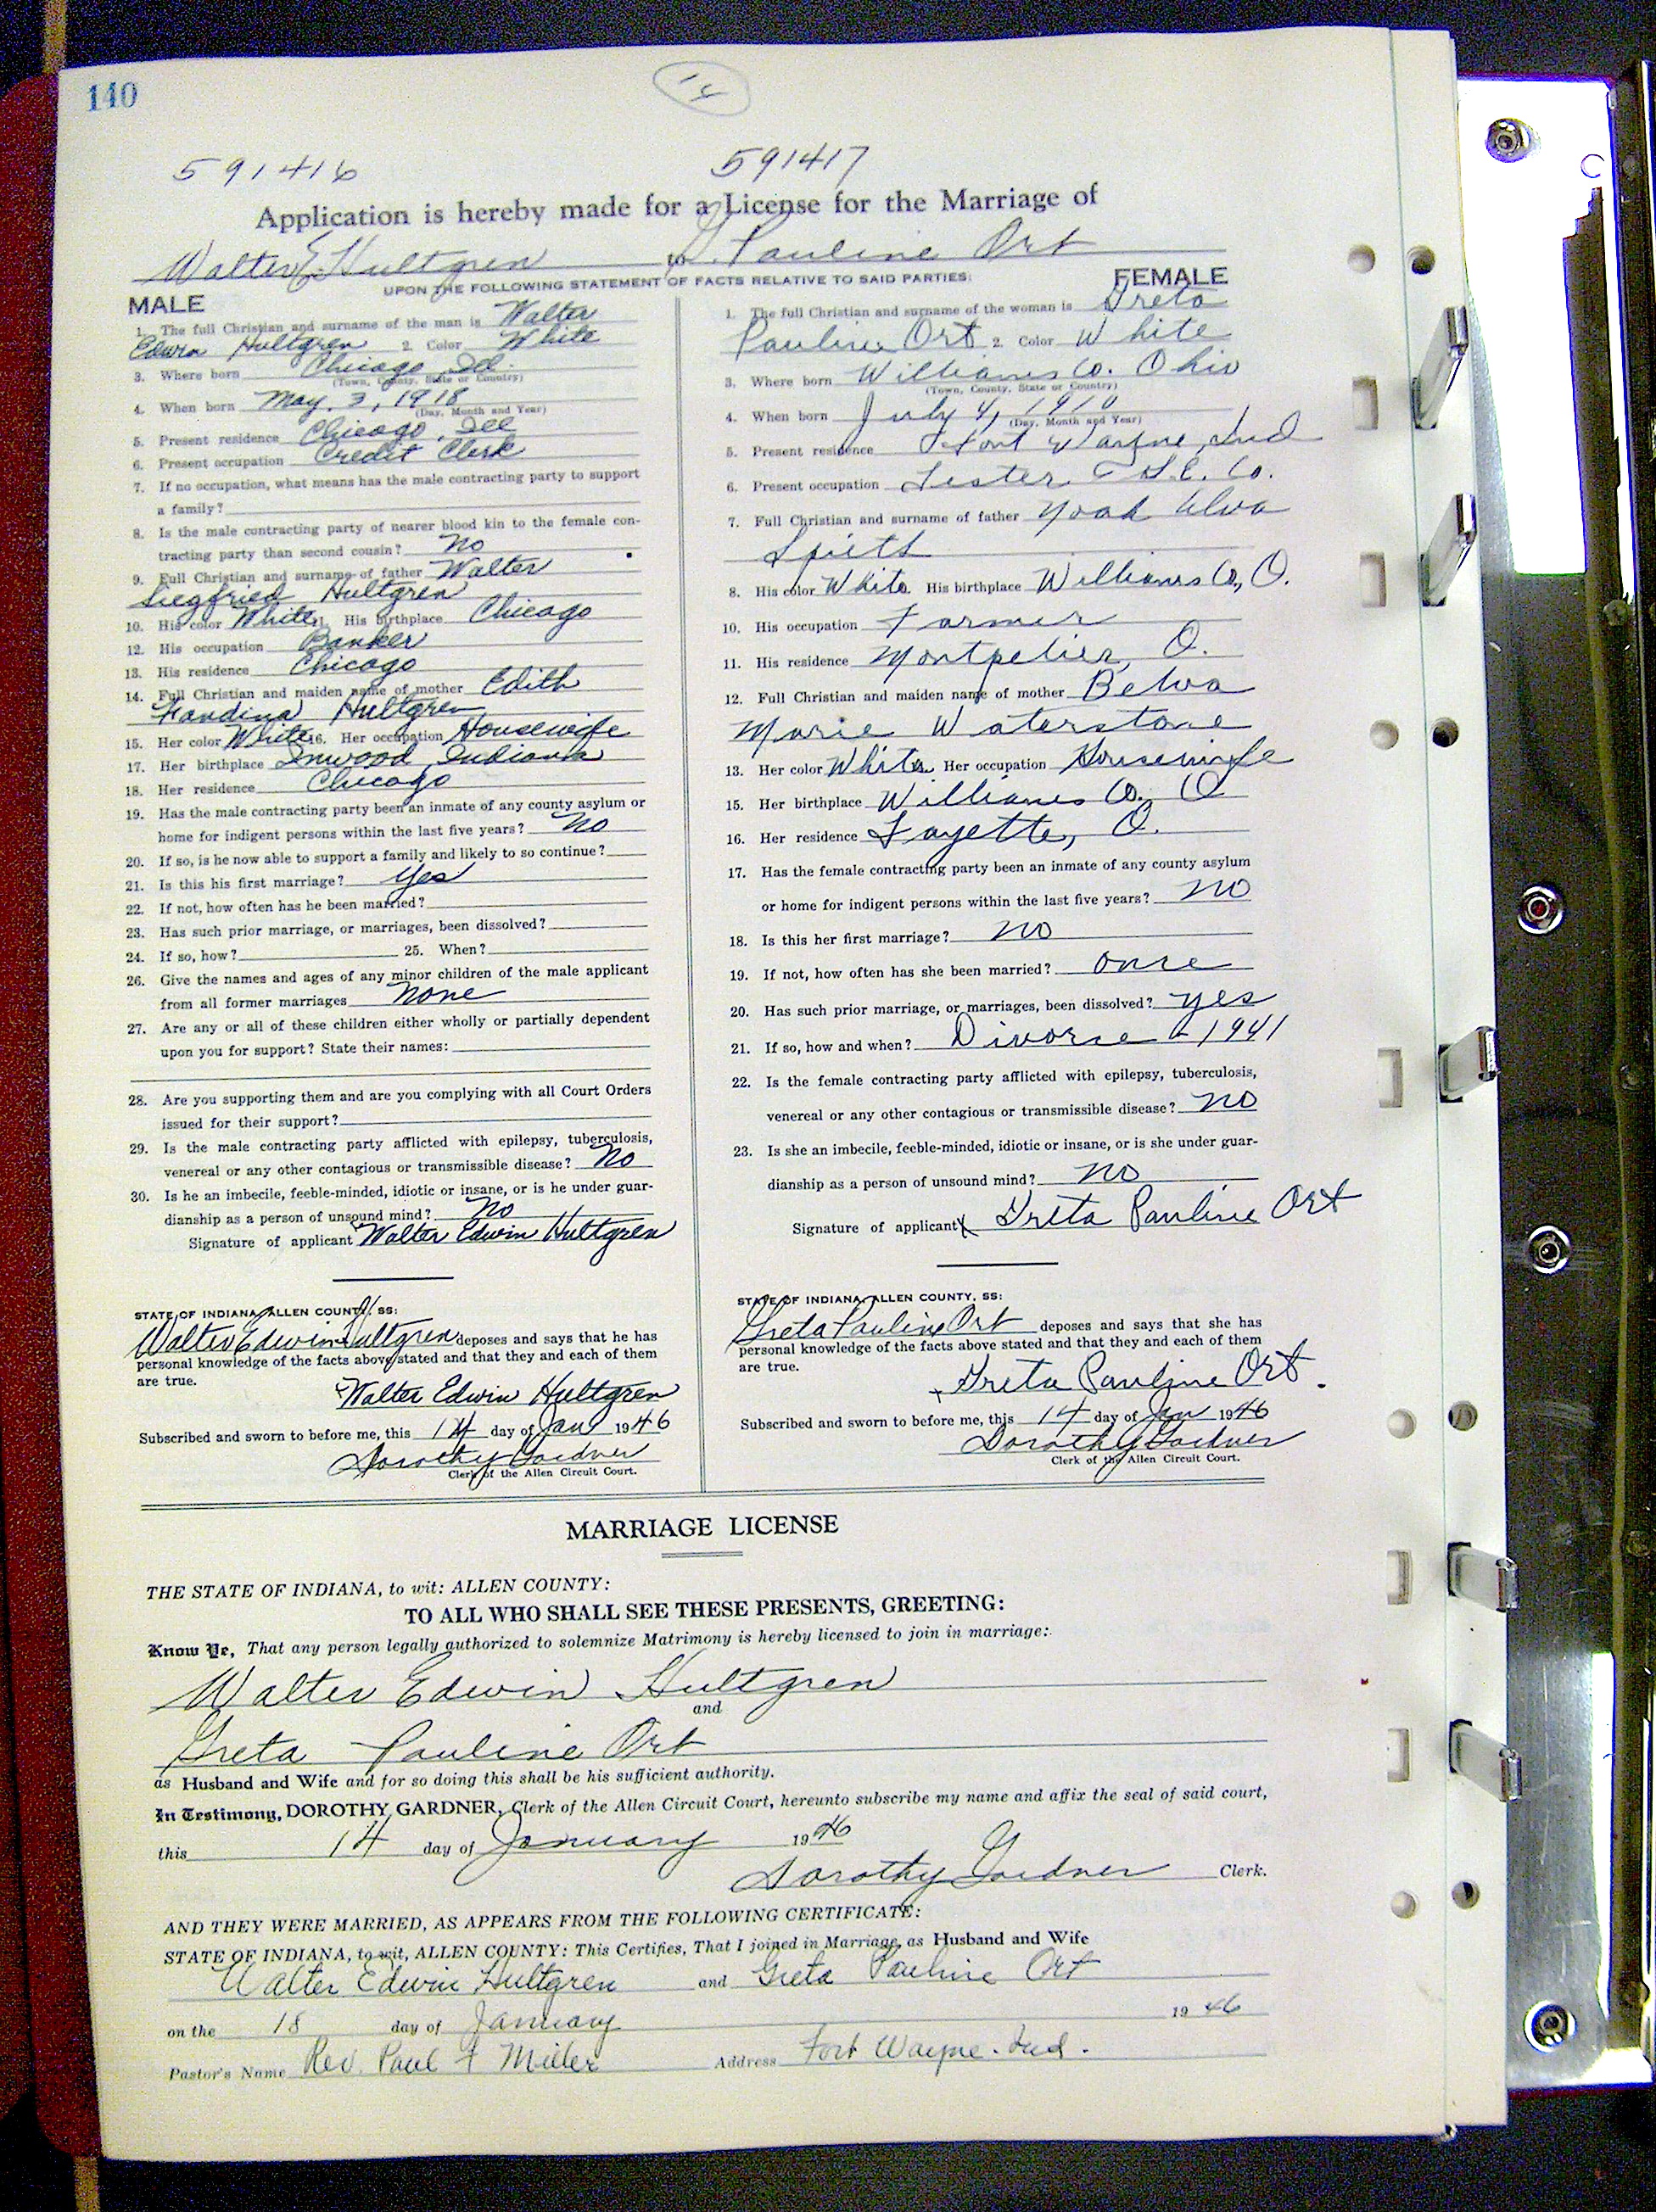 140
14
591416 591417
Application is hereby made for a License for the Marriage of
Walter E. Hultgren to G. Pauline Ort
UPON THE FOLLOWING STATEMENT OF FACTS RELATIVE TO SAID PARTIES:
MALE
1. The full Christian and surname of the man is Walter
Edwin Hultgren 2. Color White
3. Where born Chicago, Ill.
(Town, County, State or Country)
4. When born May. 3, 1918
(Day, Month and Year)
5. Present residence Chicago, Ill
6. Present occupation Credit Clerk
7. If no occupation, what means has the male contracting party to support
a family?
8. Is the male contracting party of nearer blood kin to the female con-
tracting party than second cousin? No
9. Full Christian and surname of father Walter
Siegfried Hultgren
10. His color White 11. His birthplace Chicago
12. His occupation Banker
13. His residence Chicago
14. Full Christian and maiden name of mother Edith
Hultgren
15. Her color White 16. Her occupation Housewife
17. Her birthplace Inwood, Indiana
18. Her residence Chicago
19. Has the male contracting party been an inmate of any county asylum or
home for indigent persons within the last five years? No
20. If so, is he now able to support a family and likely to so continue?
21. Is this his first marriage? Yes
22. If not, how often has he been married?
23. Has such prior marriage, or marriages, been dissolved?
24. If so, how? 25. When?
26. Give the names and ages of any minor children of the male applicant
from all former marriages None
27. Are any or all of these children either wholly or partially dependent
upon you for support? State their names:
28. Are you supporting them and are you complying with all Court Orders
issued for their support?
29. Is the male contracting party afflicted with epilepsy, tuberculosis,
venereal or any other contagious or transmissible disease? No
30. Is he an imbecile, feeble-minded, idiotic or insane, or is he under guar-
dianship as a person of unsound mind? No
Signature of applicant Walter Edwin Hultgren
STATE OF INDIANA, ALLEN COUNTY, SS:
Walter Edwin Hultgren deposes and says that he has
personal knowledge of the facts above stated and that they and each of them
are true.
x Walter Edwin Hultgren
Subscribed and sworn to before me, this 14 day of Jan 1946
Dorothy Gardner
Clerk of the Allen Circuit Court.
FEMALE
1. The full Christian and surname of the woman is Greta
Pauline Ort 2. Color White
3. Where born Williams Co. Ohio
(Town, County, State or Country)
4. When born July 4, 1910
(Day, Month and Year)
5. Present residence Fort Wayne, Ind
6. Present occupation Tester G.E. Co.
7. Full Christian and surname of father Noah Alva
Spieth
8. His color White His birthplace Williams Co., O.
10. His occupation Farmer
11. His residence Montpelier, O.
12. Full Christian and maiden name of mother Belva
Marie Waterstone
13. Her color White Her occupation Housewife
15. Her birthplace Williams Co. O
16. Her residence Fayette, O.
17. Has the female contracting party been an inmate of any county asylum
or home for indigent persons within the last five years? No
18. Is this her first marriage? No
19. If not, how often has she been married? once
20. Has such prior marriage, or marriages, been dissolved? yes
21. If so, how and when? Divorce - 1941
22. Is the female contracting party afflicted with epilepsy, tuberculosis,
venereal or any other contagious or transmissible disease? No
23. Is she an imbecile, feeble-minded, idiotic or insane, or is she under guar-
dianship as a person of unsound mind? No
Signature of applicant x Greta Pauline Ort
STATE OF INDIANA, ALLEN COUNTY, SS:
Greta Pauline Ort deposes and says that she has
personal knowledge of the facts above stated and that they and each of them
are true.
x Greta Pauline Ort.
Subscribed and sworn to before me, this 14 day of Jan 1946
Dorothy Gardner
Clerk of the Allen Circuit Court.
MARRIAGE LICENSE
THE STATE OF INDIANA, to wit: ALLEN COUNTY:
TO ALL WHO SHALL SEE THESE PRESENTS, GREETING:
Know Ye, That any person legally authorized to solemnize Matrimony is hereby licensed to join in marriage:
Walter Edwin Hultgren
and
Greta Pauline Ort
as Husband and Wife and for so doing this shall be his sufficient authority.
In Testimony, DOROTHY GARDNER, Clerk of the Allen Circuit Court, hereunto subscribe my name and affix the seal of said court,
this 14 day of January 1946
Dorothy Gardner Clerk.
AND THEY WERE MARRIED, AS APPEARS FROM THE FOLLOWING CERTIFICATE:
STATE OF INDIANA, to wit, ALLEN COUNTY: This Certifies, That I joined in Marriage, as Husband and Wife
Walter Edwin Hultgren and Greta Pauline Ort
on the 18 day of January 1946
Pastor's Name Rev. Paul F Miller Address Fort Wayne. Ind.